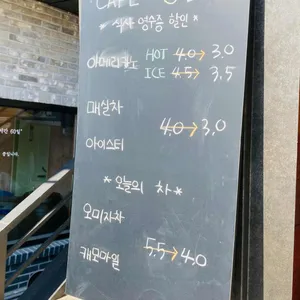 CAFE
* 식사 영수증 할인 *
아메리카노 HOT 4.0→3.0
ICE 4.5→3.5
매실차
4.0→3.0
아이스티
* 오늘의 차 *
오미자차
캐모마일 5.5→4.0